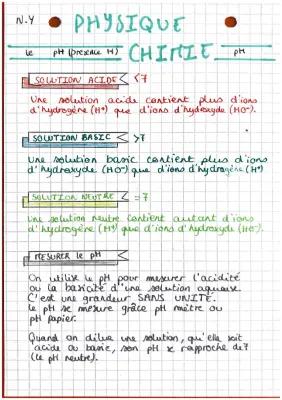 N.Y
PHYSIQUE
le pH (presence H) CHIMIE pH
SOLUTION ACIDE <7
Une solution acide contient plus d'ions
d'hydrogène (H⁺) que d'ions d'hydroxyde (HO⁻).
SOLUTION BASIC >7
Une solution basic contient plus d'ions
d'hydroxyde (HO⁻) que d'ions d'hydrogène (H⁺)
SOLUTION NEUTRE =7
Une solution neutre contient autant d'ions
d'hydrogène (H⁺) que d'ions d'hydroxyde (HO⁻).
MESURER le pH
On utilise le pH pour mesurer l'acidité
ou la basicité d'une solution aqueuse.
C'est une grandeur SANS UNITE.
le pH se mesure grâce pH mètre ou
pH papier.
Quand on dilue une solution, qu'elle soit
acide ou basic, son pH se rapproche de 7
(le pH neutre).